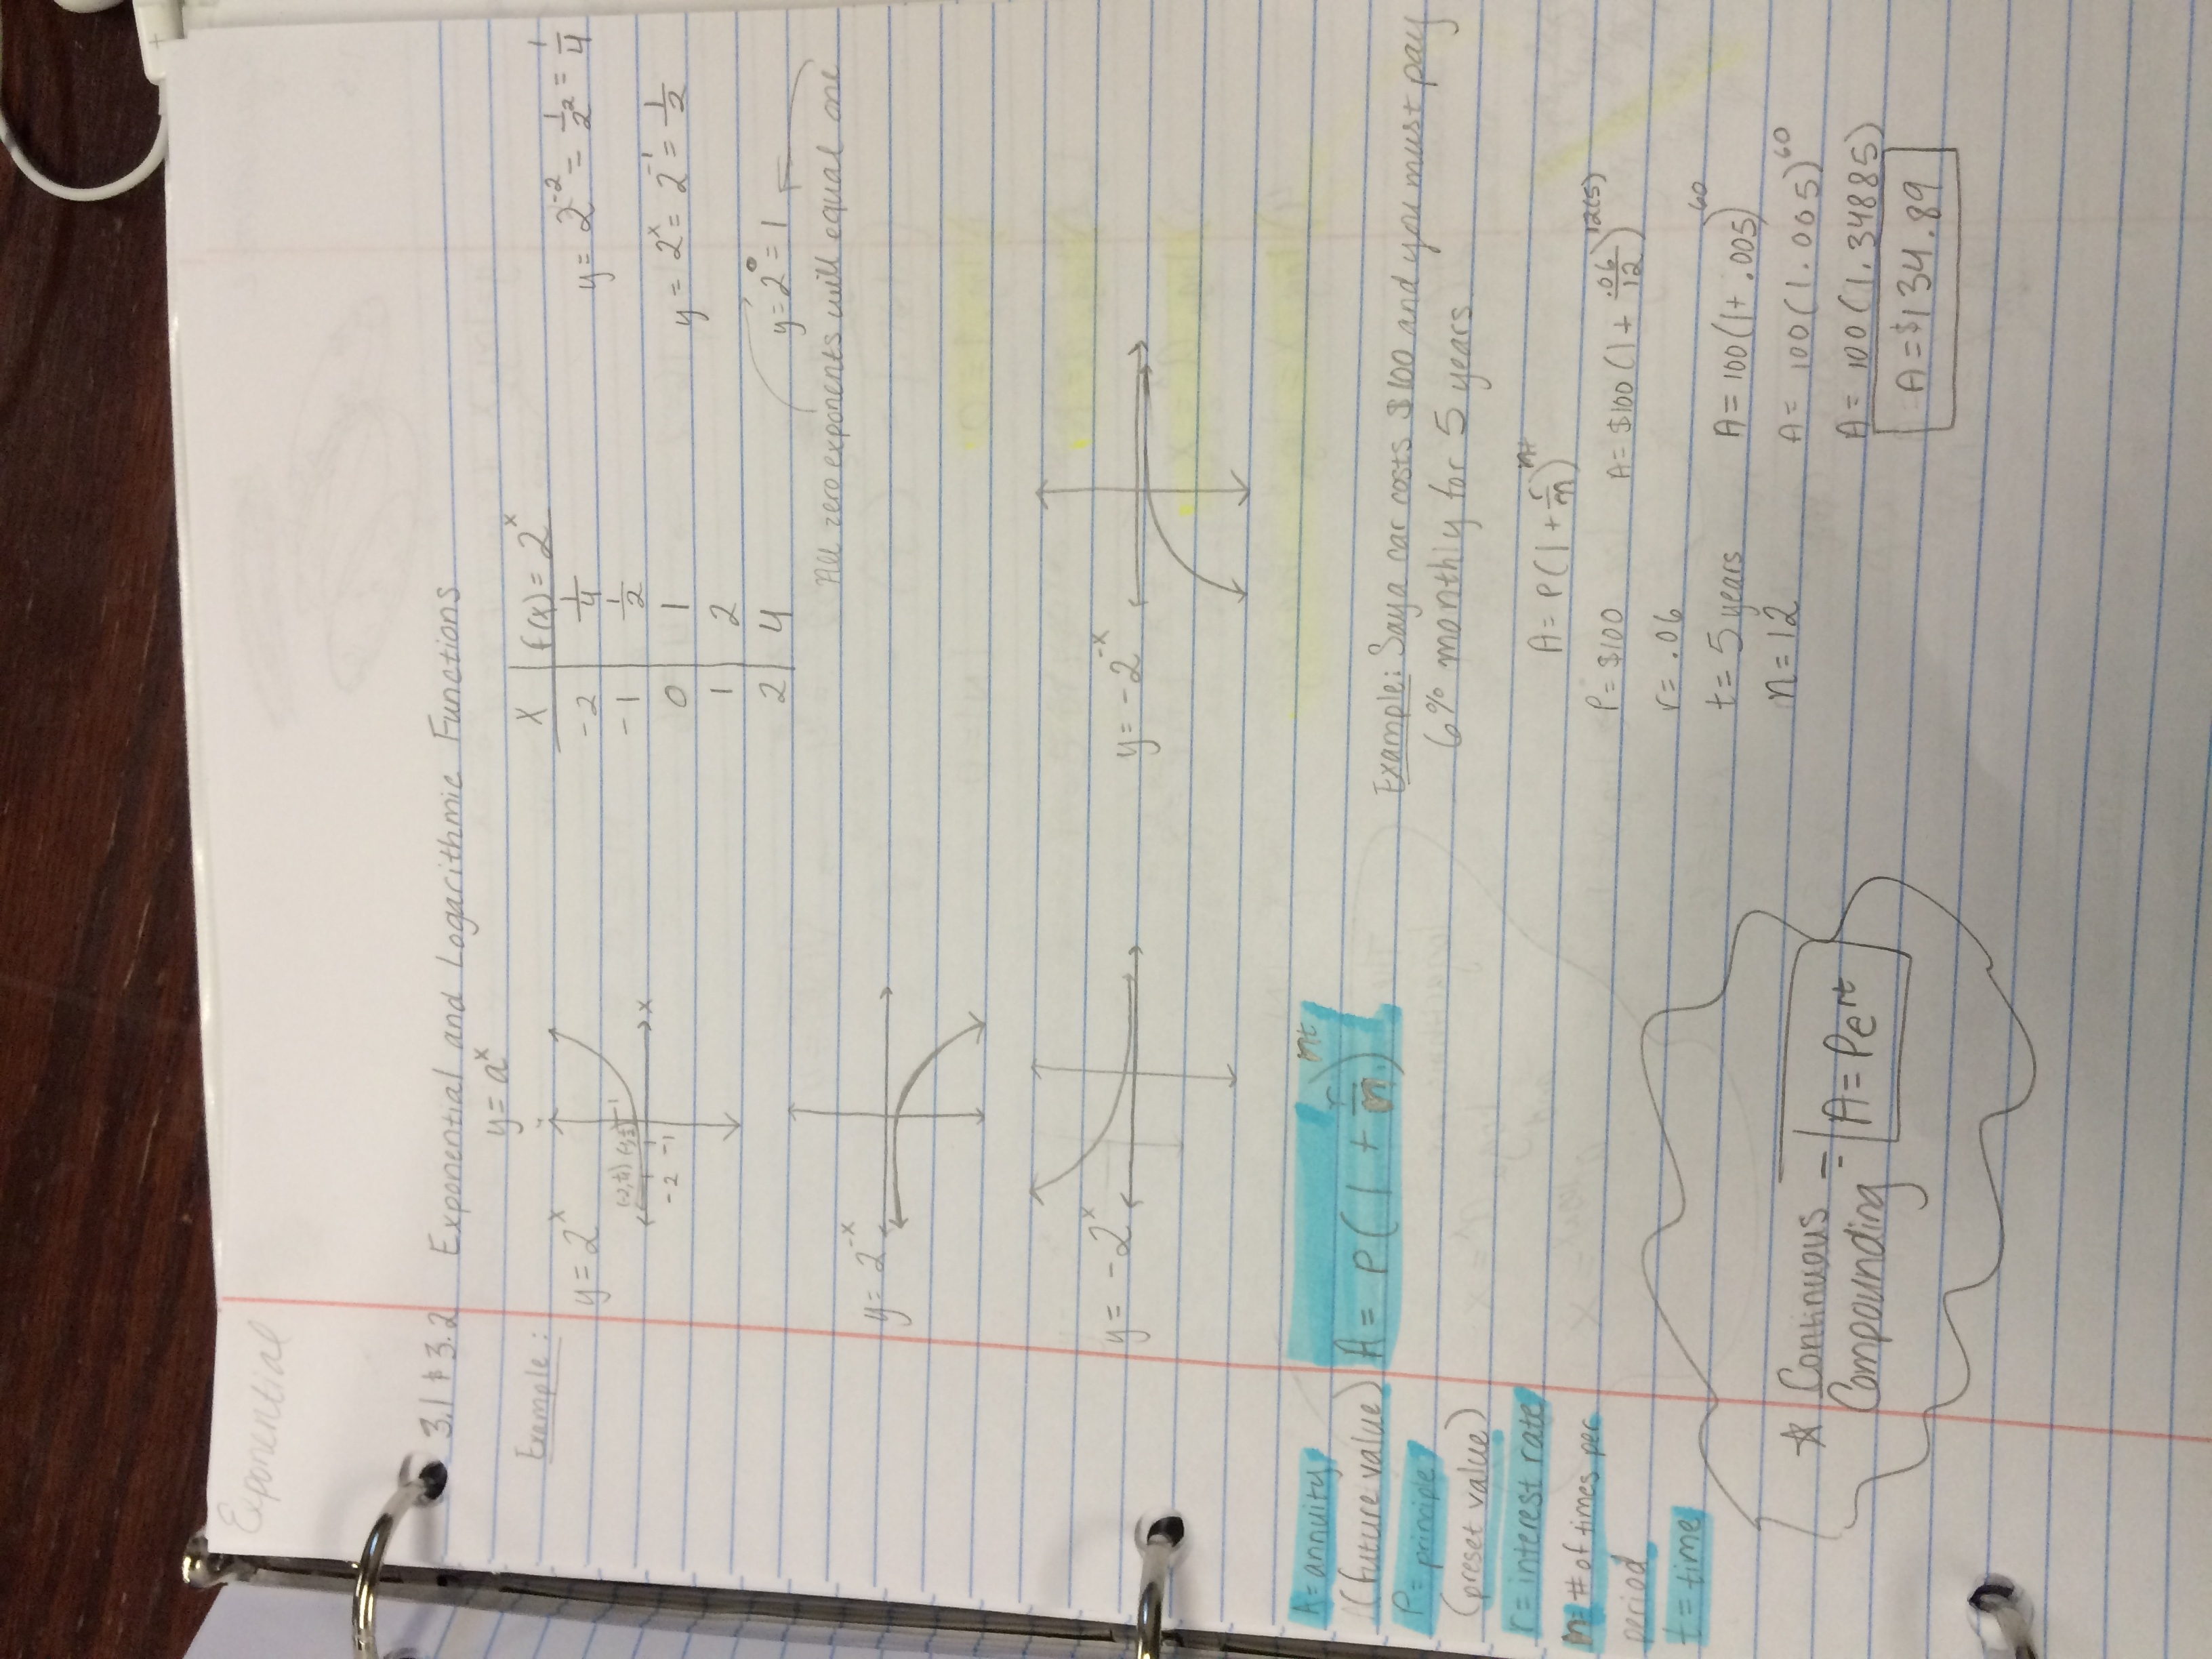 Exponential
3.1 & 3.2 Exponential and Logarithmic Functions
y = a^x
Example:
y = 2^x
x
(-2, 1/4) (-1, 1/2) 1
-2 -1
X | f(x) = 2^x
-2 | 1/4
-1 | 1/2
0 | 1
1 | 2
2 | 4
y = 2^-2 = 1/2^2 = 1/4
y = 2^x = 2^-1 = 1/2
y = 2^0 = 1
All zero exponents will equal one
y = 2^-x
y = -2^x
y = -2^-x
A = P(1 + r/n)^nt
A = annuity
(future value)
P = principle
(preset value)
r = interest rate
n = # of times per
period
t = time
Example: Say a car costs $100 and you must pay
6% monthly for 5 years
A = P(1 + r/n)^nt
P = $100
r = .06
t = 5 years
n = 12
A = $100(1 + .06/12)^12(5)
A = 100(1 + .005)^60
A = 100(1.005)^60
A = 100(1.34885)
A = $134.89
☆ Continuous
Compounding = A = Pe^rt